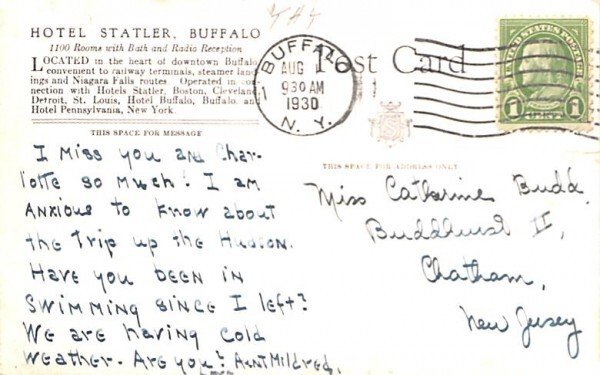 HOTEL STATLER, BUFFALO
1100 Rooms with Bath and Radio Reception
LOCATED in the heart of downtown Buffalo
convenient to railway terminals, steamer land-
ings and Niagara Falls routes. Operated in con-
nection with Hotels Statler, Boston, Cleveland
Detroit, St. Louis, Hotel Buffalo, Buffalo, and
Hotel Pennsylvania, New York.
THIS SPACE FOR MESSAGE
I Miss you and Char-
lotte so much! I am
Anxious to know about
the Trip up the Hudson.
Have you been in
swimming since I left?
We are having cold
weather. Are you? Aunt Mildred.
BUFFALO
AUG
930 AM
1930
N. Y.
1
Post Card
UNITED STATES POSTAGE
1 CENT 1
THIS SPACE FOR ADDRESS ONLY
Miss Catharine Budd
Buddhurst II,
Chatham,
New Jersey